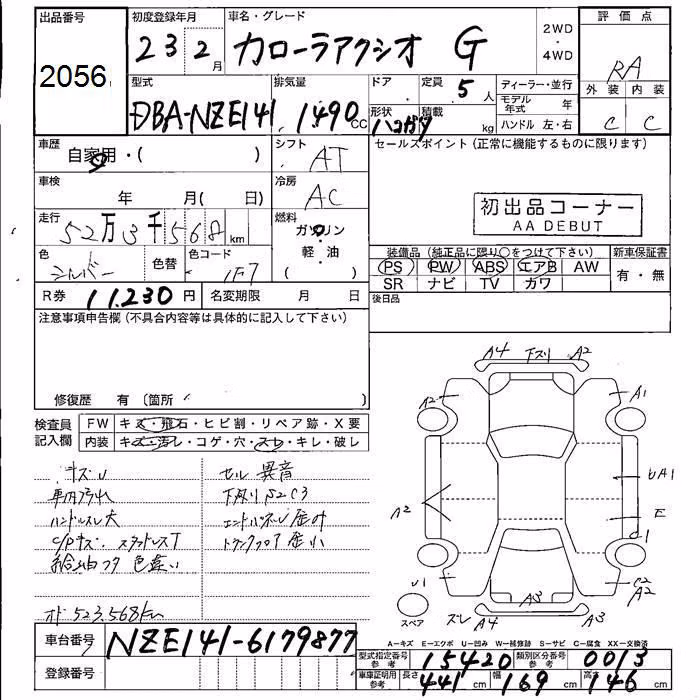 出品番号 初度登録年月 車名・グレード 2WD ・ 4WD 評価点
2056 23 2月 カローラアクシオ G RA
型式 排気量 ドア 定員 5人 ディーラー・並行 外装 内装
DBA-NZE141 1490 CC 形状 積載 kg モデル年式 年 C C
ハンドル 左・右
車歴 自家用・( ) シフト AT セールスポイント(正常に機能するものに限ります)
車検 年 月( 日) 冷房 AC
初出品コーナー
AA DEBUT
走行 52万3千568 km 燃料 ガソリン・軽・油( )
色 シルバー 色替 色コード 1F7
装備品(純正品に限り○をつけて下さい) 新車保証書
PS PW ABS エアB AW 有・無
SR ナビ TV ガワ
R券 11,230円 名変期限 月 日 後日品
注意事項申告欄(不具合内容等は具体的に記入して下さい)
修復歴 有 〔箇所 〕
A4 下ズリ A2
A2 A1
検査員記入欄 FW キズ・飛石・ヒビ割・リペア跡・X要
内装 キズ・汚レ・コゲ・穴・スレ・キレ・破レ
キズU セル 異音
車内汚れ 下廻りS2C3
ハンドルスレ大 エンドパネル歪み
C/Pキズ スタッドレスT トランクフロア歪小
給油フタ 色違い
UA1
A2 E
U1 C2
A2
スペア A3
ズレ A4 A3
オド 523,568km
A-キズ E-エクボ U-凹み W-補修跡 S-サビ C-腐食 XX-交換済
車台番号 NZE141-6179877
型式指定番号 参考 15420 類別区分番号 参考 0013
登録番号
車庫証明用 参考 長さ 441cm 幅 169cm 高さ 146cm